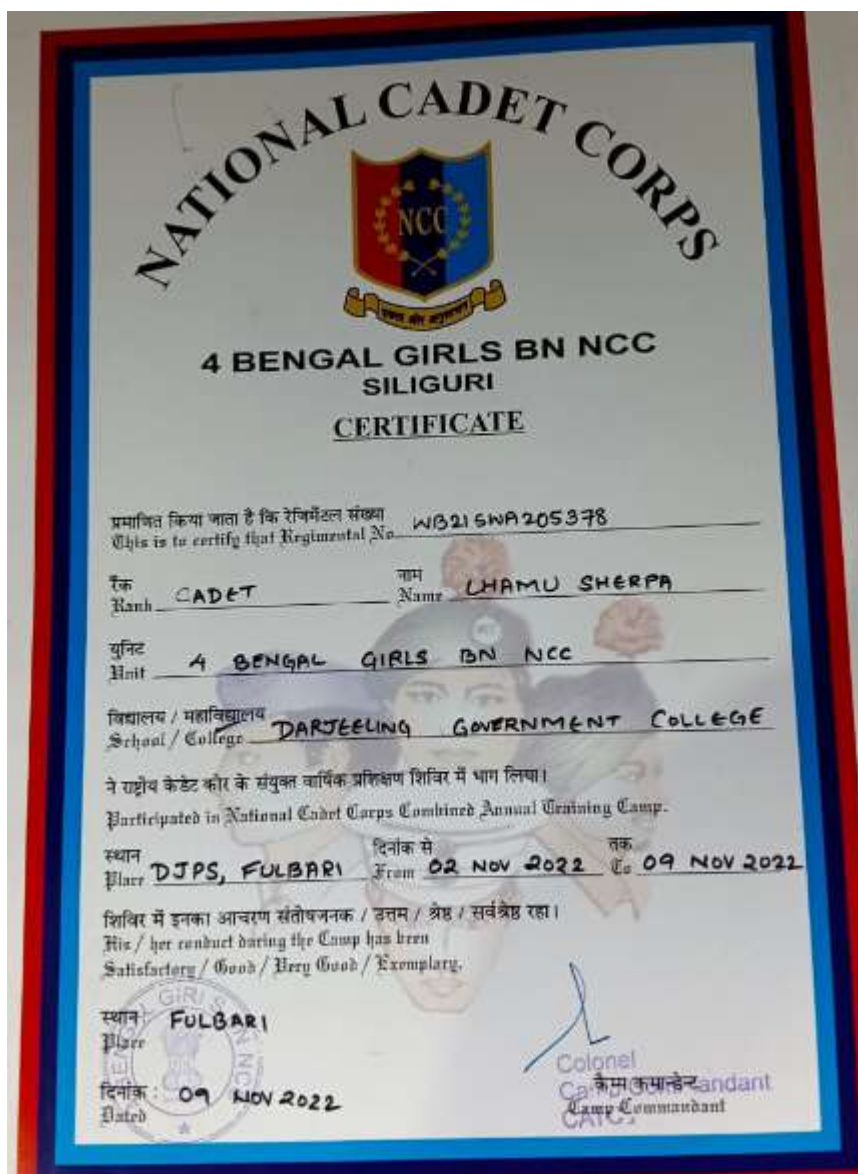 NATIONAL CADET CORPS
NCC
एकता और अनुशासन
4 BENGAL GIRLS BN NCC
SILIGURI
CERTIFICATE
प्रमाणित किया जाता है कि रेजिमेंटल संख्या
This is to certify that Regimental No. WB21SWA205378
रैंक नाम
Rank CADET Name LHAMU SHERPA
युनिट
Unit 4 BENGAL GIRLS BN NCC
विद्यालय / महाविद्यालय
School / College DARJEELING GOVERNMENT COLLEGE
ने राष्ट्रीय केडेट कोर के संयुक्त वार्षिक प्रशिक्षण शिविर में भाग लिया।
Participated in National Cadet Corps Combined Annual Training Camp.
स्थान दिनांक से तक
Place DJPS, FULBARI From 02 NOV 2022 To 09 NOV 2022
शिविर में इनका आचरण संतोषजनक / उत्तम / श्रेष्ठ / सर्वश्रेष्ठ रहा।
His / her conduct during the Camp has been
Satisfactory / Good / Very Good / Exemplary.
स्थान : FULBARI
Place
दिनांक : 09 NOV 2022
Dated
BENGAL GIRLS BN NCC
Colonel
Camp Commandant
कैम्प कमान्डेन्ट
Camp Commandant